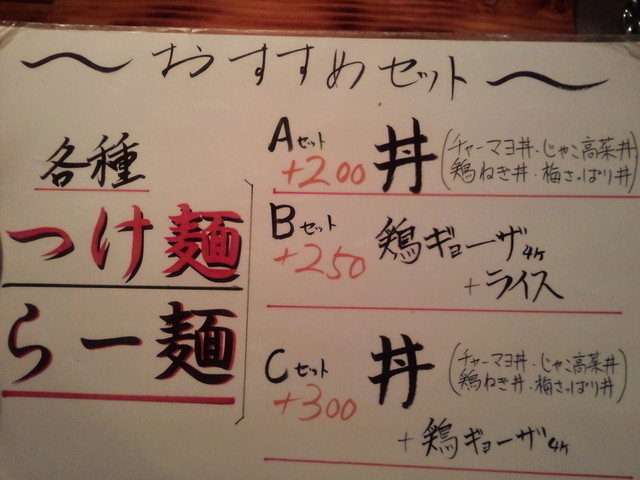 〜おすすめセット〜
各種
つけ麺
らー麺
Aセット
+200
丼
(チャーマヨ丼・じゃこ高菜丼
鶏ねぎ丼・梅さっぱり丼)
Bセット
+250
鶏ギョーザ4ヶ
+ライス
Cセット
+300
丼
(チャーマヨ丼・じゃこ高菜丼
鶏ねぎ丼・梅さっぱり丼)
+鶏ギョーザ4ヶ